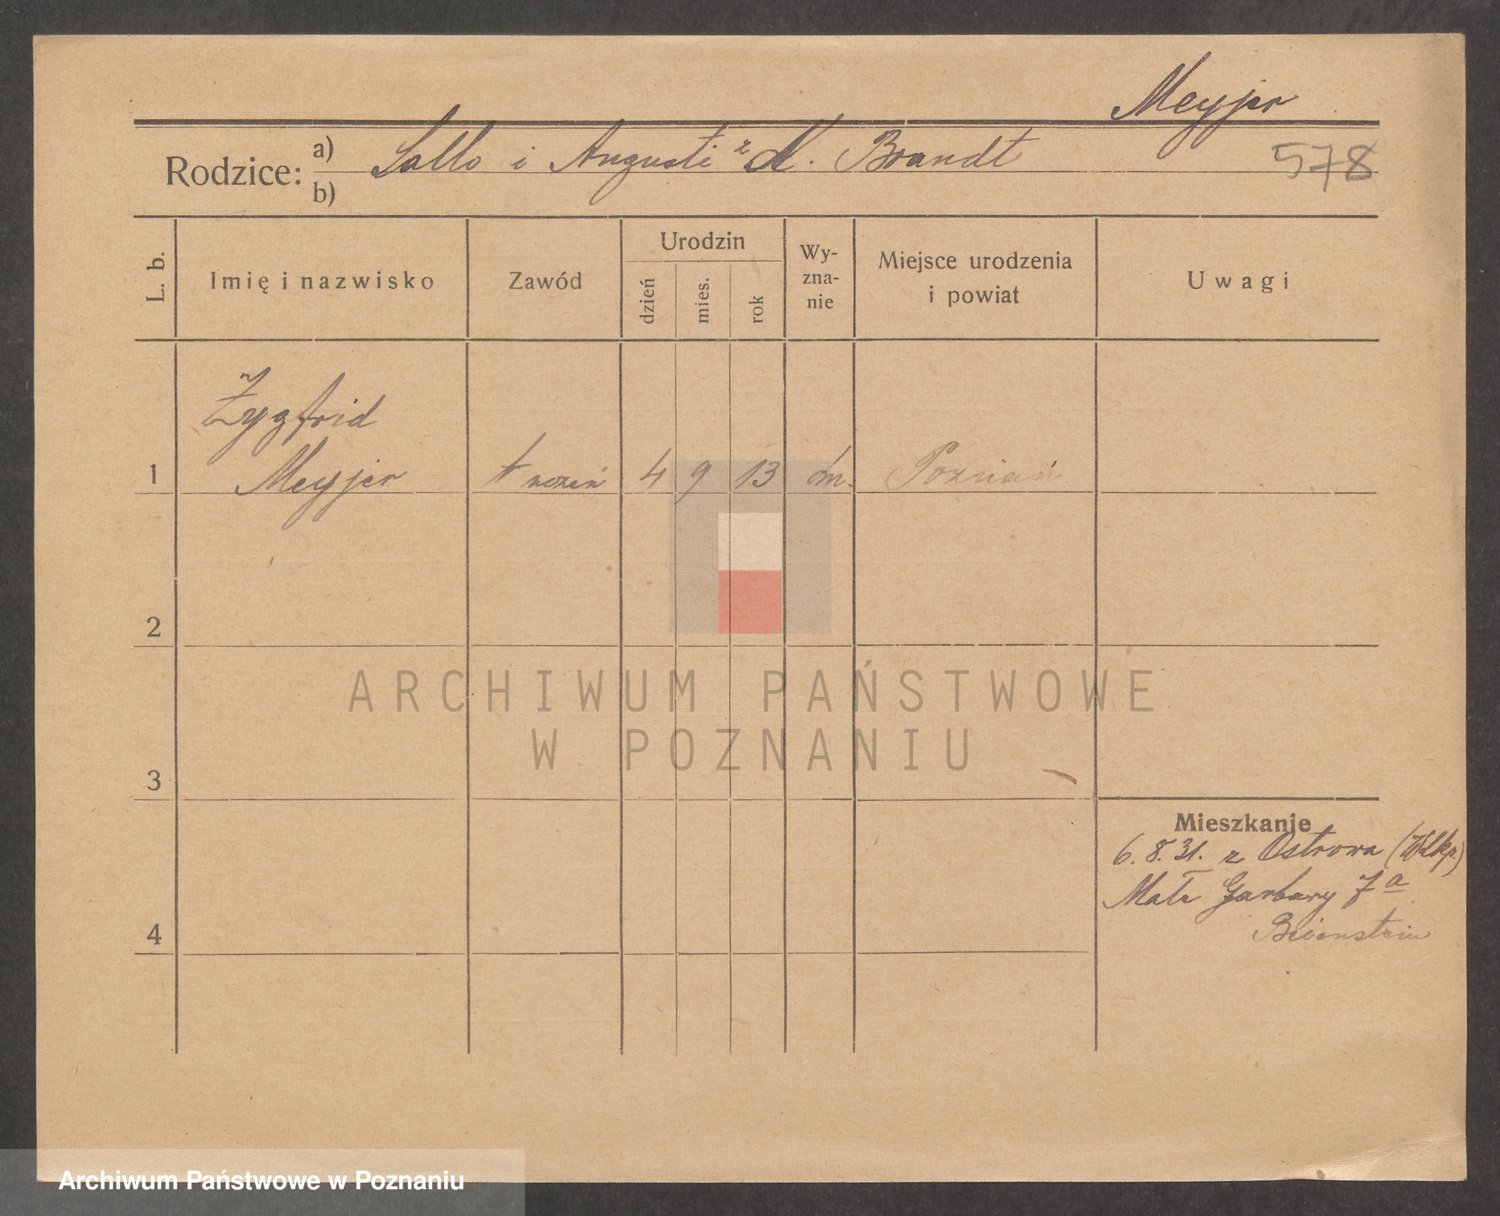 Meyjer
Rodzice: a) Sallo i Augusti z d. Brandt
b)
578
L. b.
Imię i nazwisko
Zawód
Urodzin
dzień
mies.
rok
Wy-
zna-
nie
Miejsce urodzenia
i powiat
Uwagi
Zygfrid
1 Meyjer uczeń 4 9 13 m. Poznań
2
ARCHIWUM PAŃSTWOWE
W POZNANIU
3
Mieszkanie
6.8.31. z Ostrowa (Wlkp)
Małe Garbary 7a
4
Archiwum Państwowe w Poznaniu